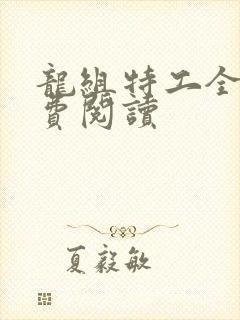 龍組特工全
費閱讀
夏毅敏